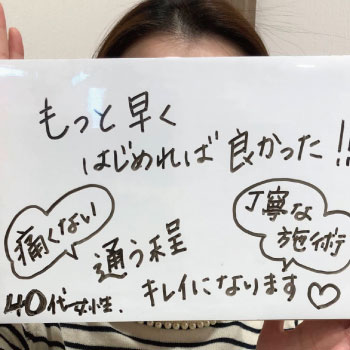 もっと早く
はじめれば良かった!!
痛くない
丁寧な
施術
通う程
キレイになります♡
40代女性.